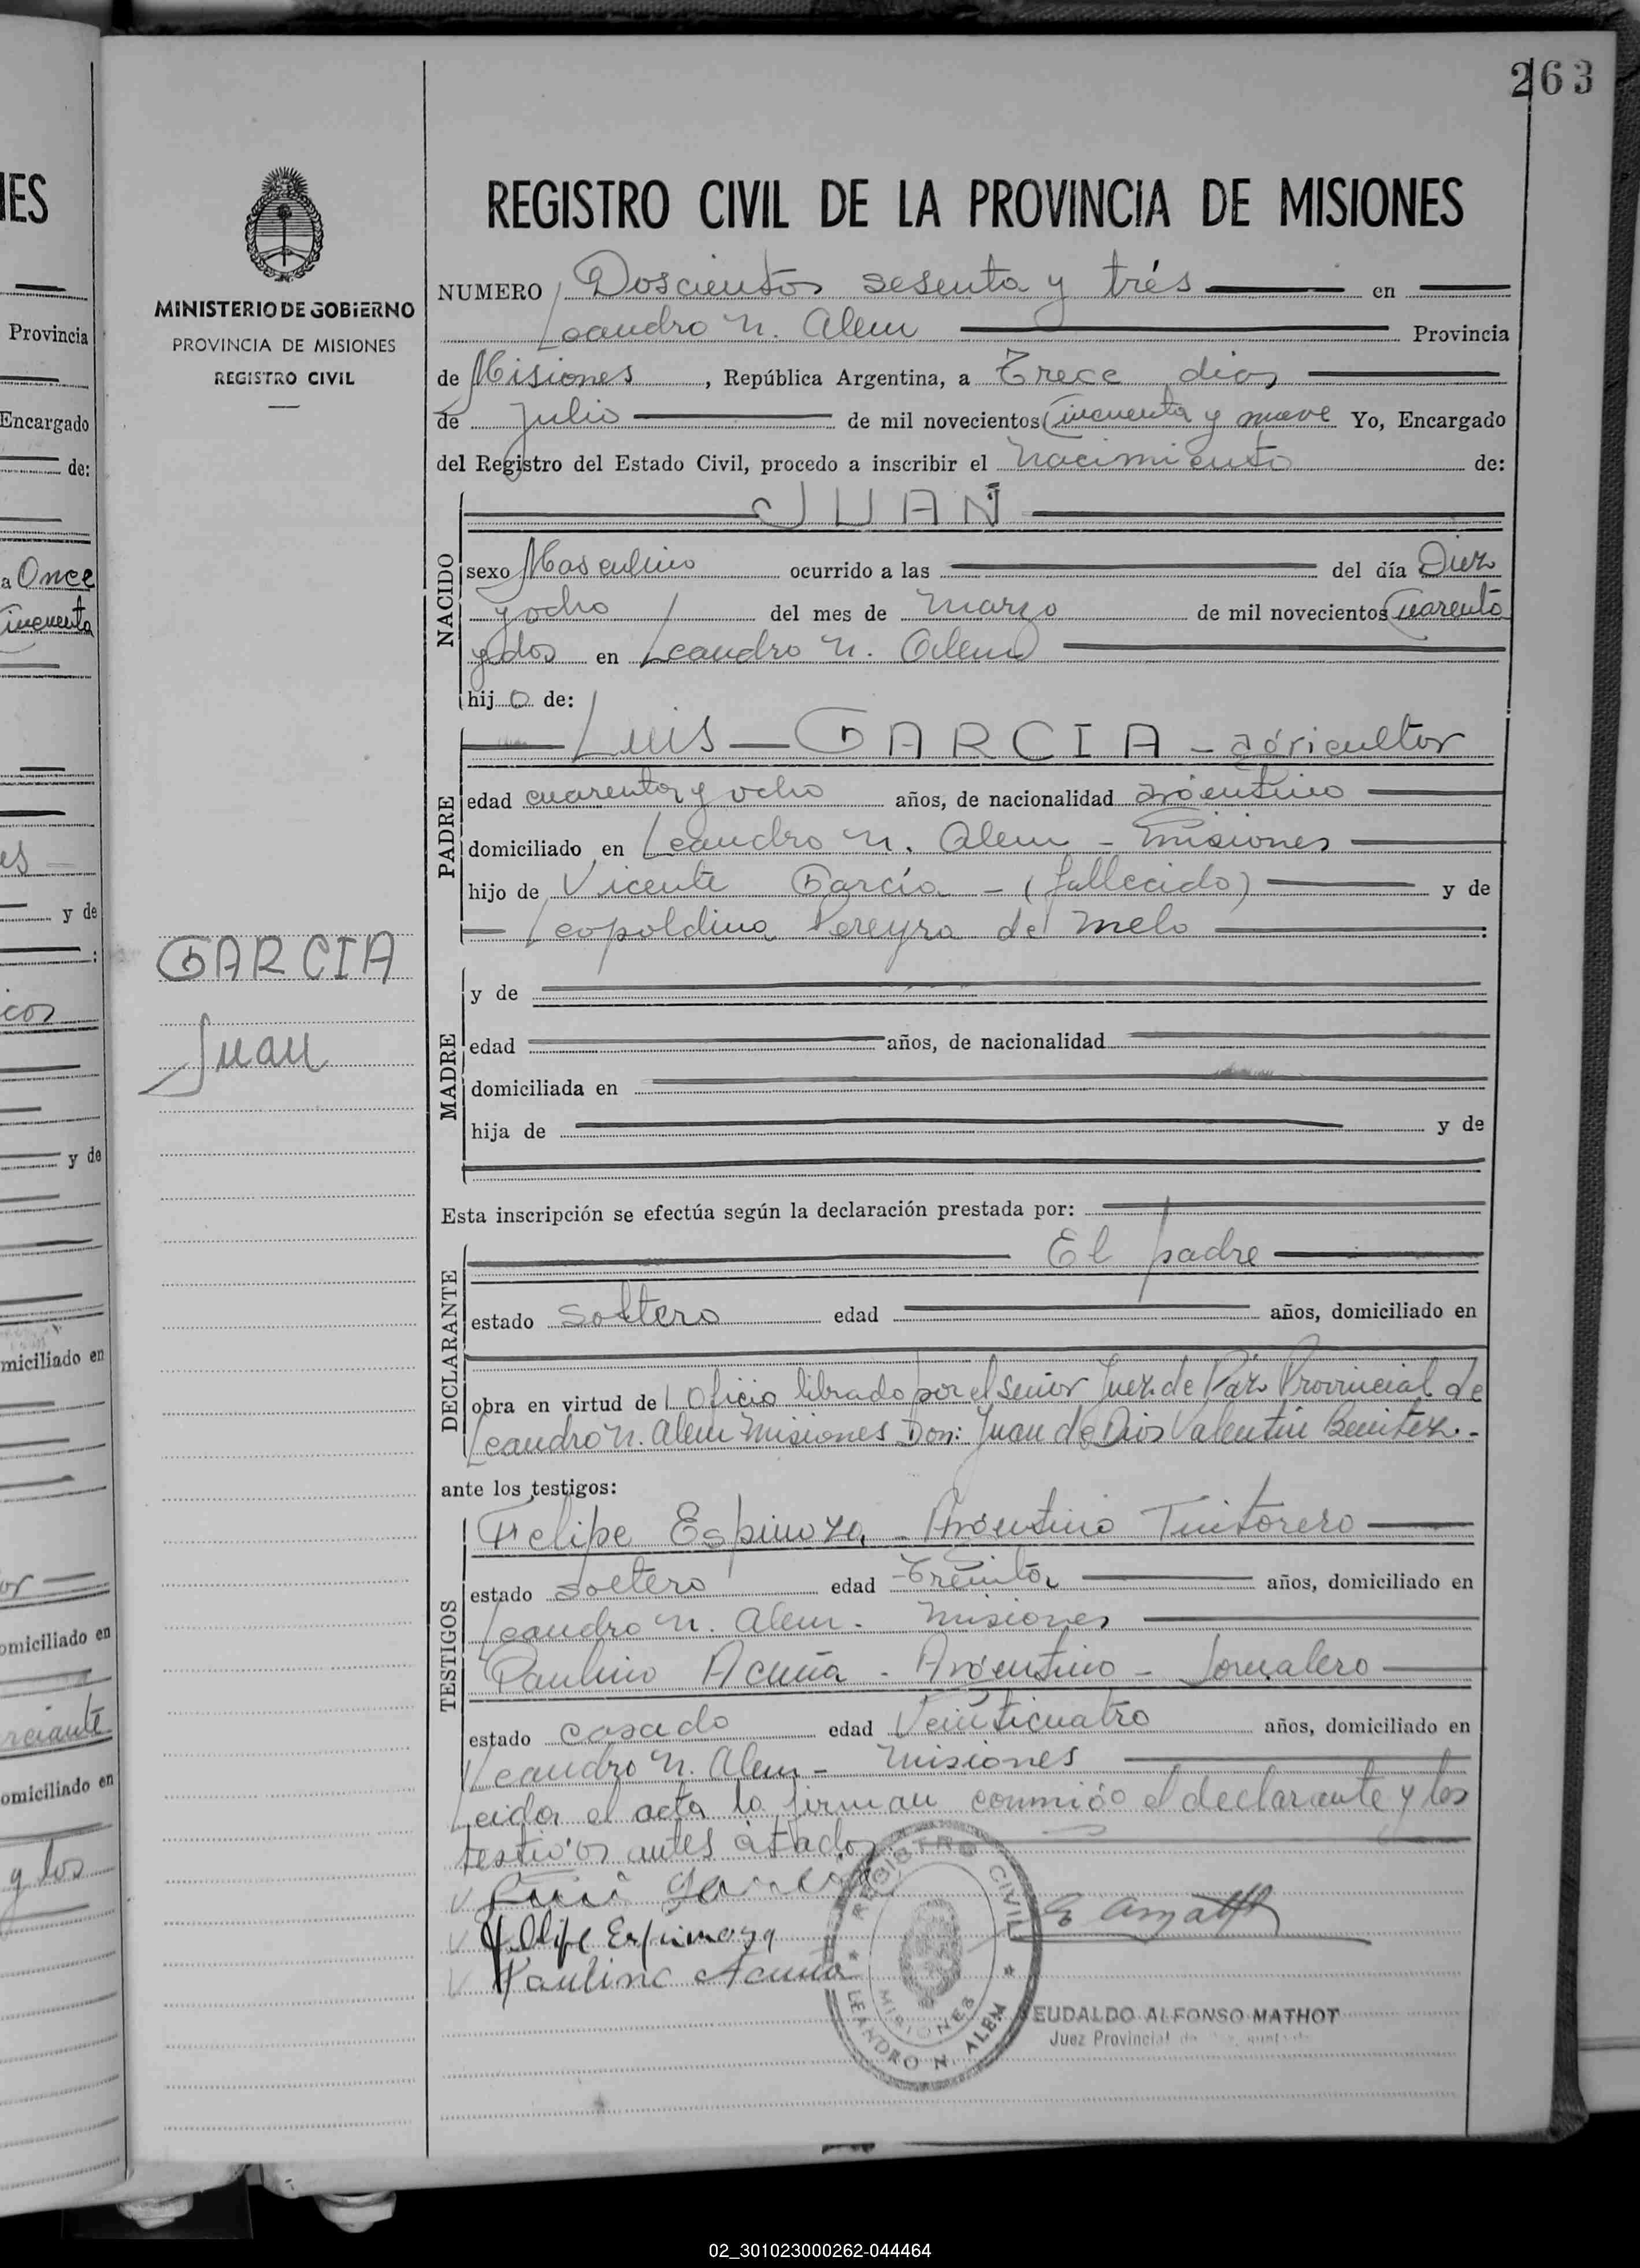 263
REGISTRO CIVIL DE LA PROVINCIA DE MISIONES
MINISTERIO DE GOBIERNO
PROVINCIA DE MISIONES
REGISTRO CIVIL
NUMERO Doscientos sesenta y trés en
Leandro N. Alem Provincia
de Misiones, República Argentina, a Trece dias
de Julio de mil novecientos Cincuenta y nueve Yo, Encargado
del Registro del Estado Civil, procedo a inscribir el Nacimiento de:
NACIDO
JUAN
sexo Masculino ocurrido a las del día Diez
y ocho del mes de Marzo de mil novecientos Cuarenta
y dos en Leandro N. Alem
hijo de:
PADRE
Luis GARCIA - agricultor
edad cuarenta y ocho años, de nacionalidad argentino
domiciliado en Leandro N. Alem - Misiones
hijo de Vicente García - (fallecido) y de
Leopoldina Pereyra de Melo
GARCIA
Juan
MADRE
y de
edad años, de nacionalidad
domiciliada en
hija de y de
Esta inscripción se efectúa según la declaración prestada por:
DECLARANTE
El padre
estado soltero edad años, domiciliado en
obra en virtud del Oficio librado por el Señor Juez de Paz Provincial de
Leandro N. Alem Misiones Don: Juan de Dios Valentin Benitez.-
ante los testigos:
TESTIGOS
Felipe Espinoza - Argentino Tintorero
estado soltero edad Treinta años, domiciliado en
Leandro N. Alem. Misiones
Paulino Acuña - Argentino - Jornalero
estado casado edad Veinticuatro años, domiciliado en
Leandro N. Alem - Misiones
Leida el acta la firman conmigo el declarante y los
testigos antes citados
Luis Garcia
Felipe Espinoza
Paulino Acuña
REGISTRO CIVIL
MISIONES
LEANDRO N. ALEM
EUDALDO ALFONSO MATHOT
Juez Provincial de
IES
Provincia
Encargado
de:
a Once
Cincuenta
y de
y de
miciliado en
omiciliado en
rciante
omiciliado en
y los
02_301023000262-044464